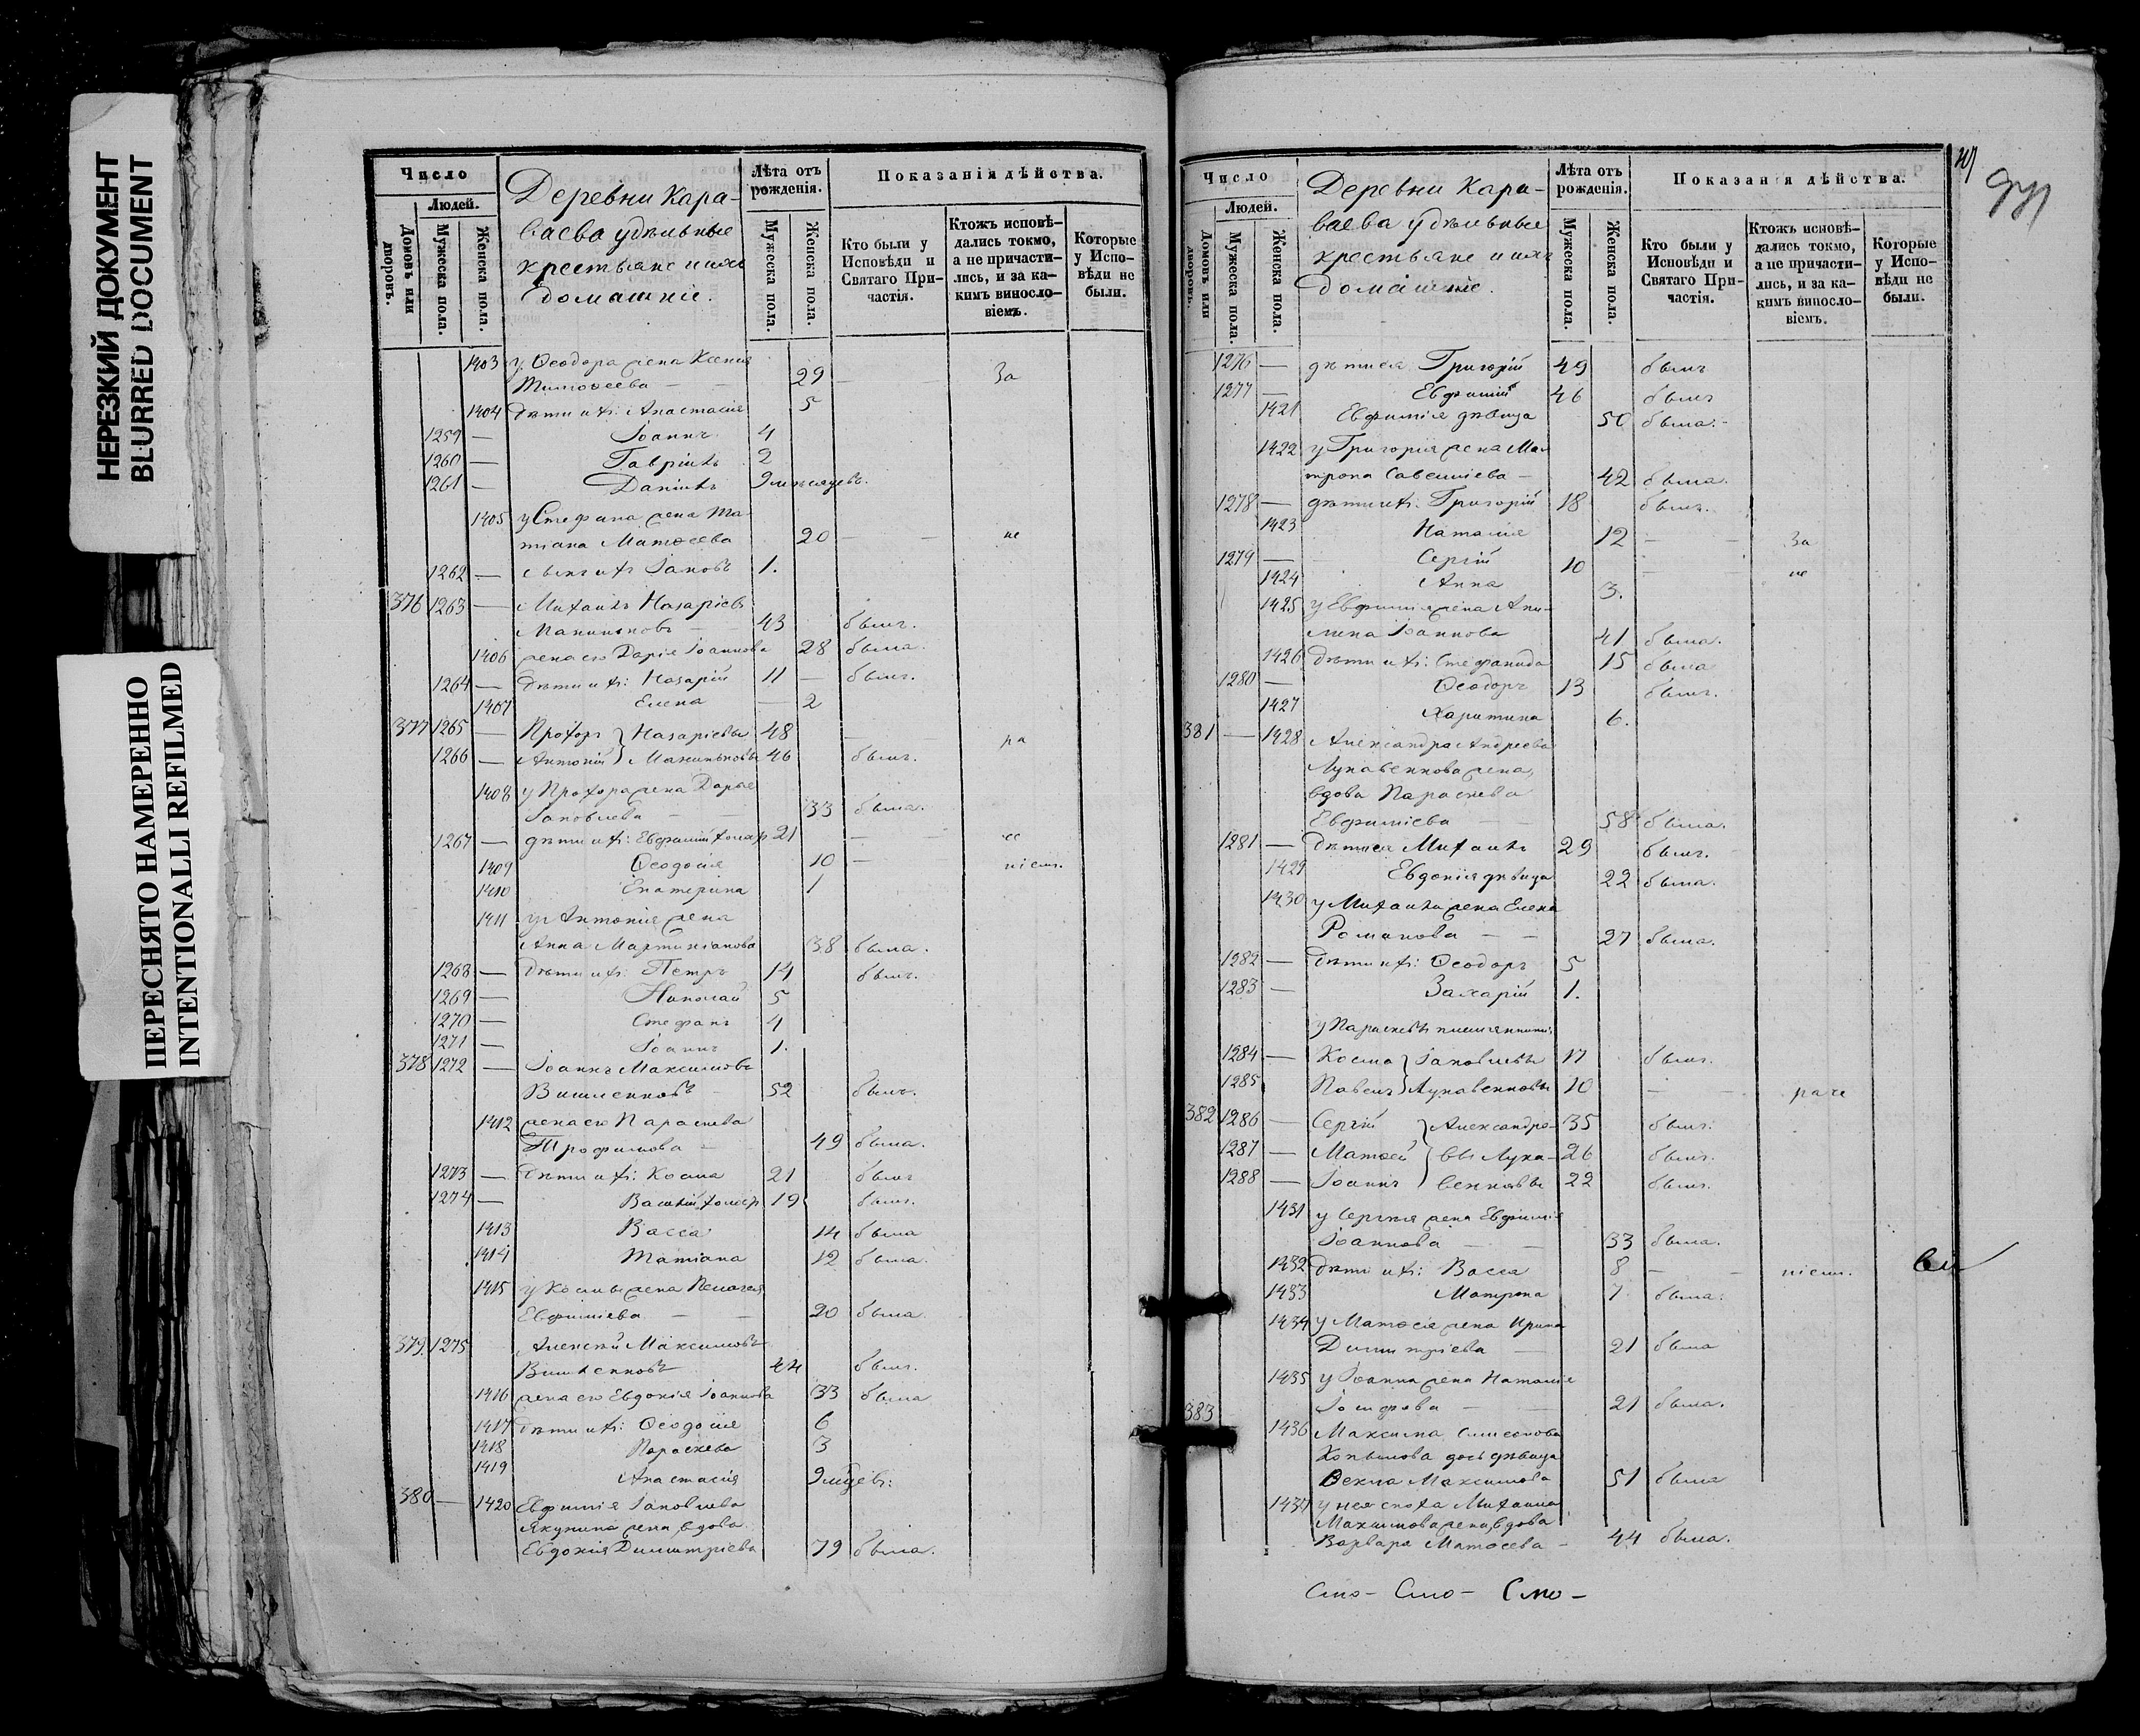 НЕРЕЗКИЙ ДОКУМЕНТ
BLURRED DOCUMENT
ПЕРЕСНЯТО НАМЕРЕННО
INTENTIONALLI REFILMED
Число
Людей.
Домовъ или дворовъ.
Мужеска пола.
Женска пола.
Деревни Кара-
ваева удѣльные
крестьяне и ихъ
домашніе.
Лѣта отъ рожденія.
Мужеска пола.
Женска пола.
Показанія дѣйства.
Кто были у Исповѣди и Святаго Причастія.
Ктожъ исповѣ-
дались токмо,
а не причасти-
лись, и за ка-
кимъ виносло-
віемъ.
Которые
у Испо-
вѣди не
были.
1403 у Ѳеодора жена Ксенія
Тимоѳеева — 29 — За
1404 дѣти ихъ: Анастасія 5
1259 — Іоаннъ 4
1260 — Гавріилъ 2
1261 — Даніилъ 9 мѣсяцевъ.
1405 у Стефана жена Та-
тіана Матѳеева 20 — не
1262 — сынъ ихъ Іаковъ 1.
376 1263 — Михаилъ Назаріевъ
43 былъ.
1406 жена его Дарія Іоаннова 28 была.
1264 — дѣти ихъ: Назарій 11 — былъ.
1407 Елена — 2
377 1265 — Прохоръ } Назаріевы 48 — ра
1266 — Антоній } 46 былъ.
1408 у Прохора жена Дарья
Іаковлева — 33 была.
1267 — дѣти ихъ: Евфимій холос. 21 — че
1409 Ѳеодосія 10 — ніем.
1410 Екатерина 1
1411 у Антонія жена
Анна Мартиніанова 38 была.
1268 — дѣти ихъ: Петръ 14 былъ.
1269 — Николай 5
1270 — Стефанъ 4
1271 — Іоаннъ 1.
378 1272 — Іоаннъ Максимовъ
52 былъ.
1412 жена его Параскева
Трофимова — 49 была.
1273 — дѣти ихъ: Косма 21 былъ
1274 — Василій холос. 19 былъ.
1413 Васса 14 была
1414 Татіана 12 была.
1415 у Космы жена Пелагея
Евфиміева — 20 была.
379 1275 Алексій Максимовъ
44 былъ.
1416 жена его Евдокія Іоаннова 33 была
1417 дѣти ихъ: Ѳеодосія 6
1418 Параскева 3
1419 Анастасія 9 мѣцев:
380 — 1420 Евфимія Іаковлева
Якунина жена вдова
Евдокія Димитріева 79 была.
Число
Людей.
Домовъ или дворовъ.
Мужеска пола
Женска пола.
Деревни Кара-
ваева удѣльные
крестьяне и ихъ
домашніе.
Лѣта отъ рожденія.
Мужеска пола.
Женска пола.
Показанія дѣйства.
Кто были у Исповѣди и Святаго Причастія.
Ктожъ исповѣ-
дались токмо,
а не причасти-
лись, и за ка-
кимъ виносло-
віемъ.
Которые
у Испо-
вѣди не
были.
1276 — дѣти ея Григорій 49 былъ
1277 — Евфимій 46 былъ
1421 Евфимія дѣвица 50 была.
1422 у Григорія жена Ма-
трона Савеліева — 42 была.
1278 — дѣти ихъ: Григорій 18 былъ.
1423 Наталія 12 — За
1279 — Сергій 10 — не
1424 Анна 3.
1425 у Евфимія жена Аки-
лина Іоаннова 41 была.
1426 дѣти ихъ: Стефанида 15 была
1280 — Ѳеодоръ 13 былъ.
1427 Харитина 6.
381 — 1428 Александра Андреева
Лукавенкова жена,
вдова Параскева
Евфиміева — 58 была.
1281 — дѣти ея Михаилъ 29 былъ.
1429 Евдокія дѣвица 22 была.
1430 у Михаила жена Елена
Романова — 27 была.
1282 — дѣти ихъ: Ѳеодоръ 5
1283 — Захарій 1.
у Параскевы племянники:
1284 — Косма } Іаковлевы 17 былъ.
1285 Павелъ } Лукавенковы 10 — раче
382 1286 — Сергій } Александро- 35 былъ.
1287 — Матѳей } вы Лука- 26 былъ.
1288 — Іоаннъ } венковы 22 былъ.
1431 у Сергія жена Евфимія
Іоаннова — 33 была.
1432 дѣти ихъ: Васса 8 — ніем.
1433 Матрона 7 была.
1434 у Матѳея жена Ирина
Димитріева — 21 была
1435 у Іоанна жена Наталія
Іосифова — 21 была.
383 1436 Максима Симеонова
Копылова дочь дѣвица
Ѳекла Максимова 51 была
1437 у нея сноха Михаила
Максимова жена, вдова
Варвара Матѳеева — 44 была.